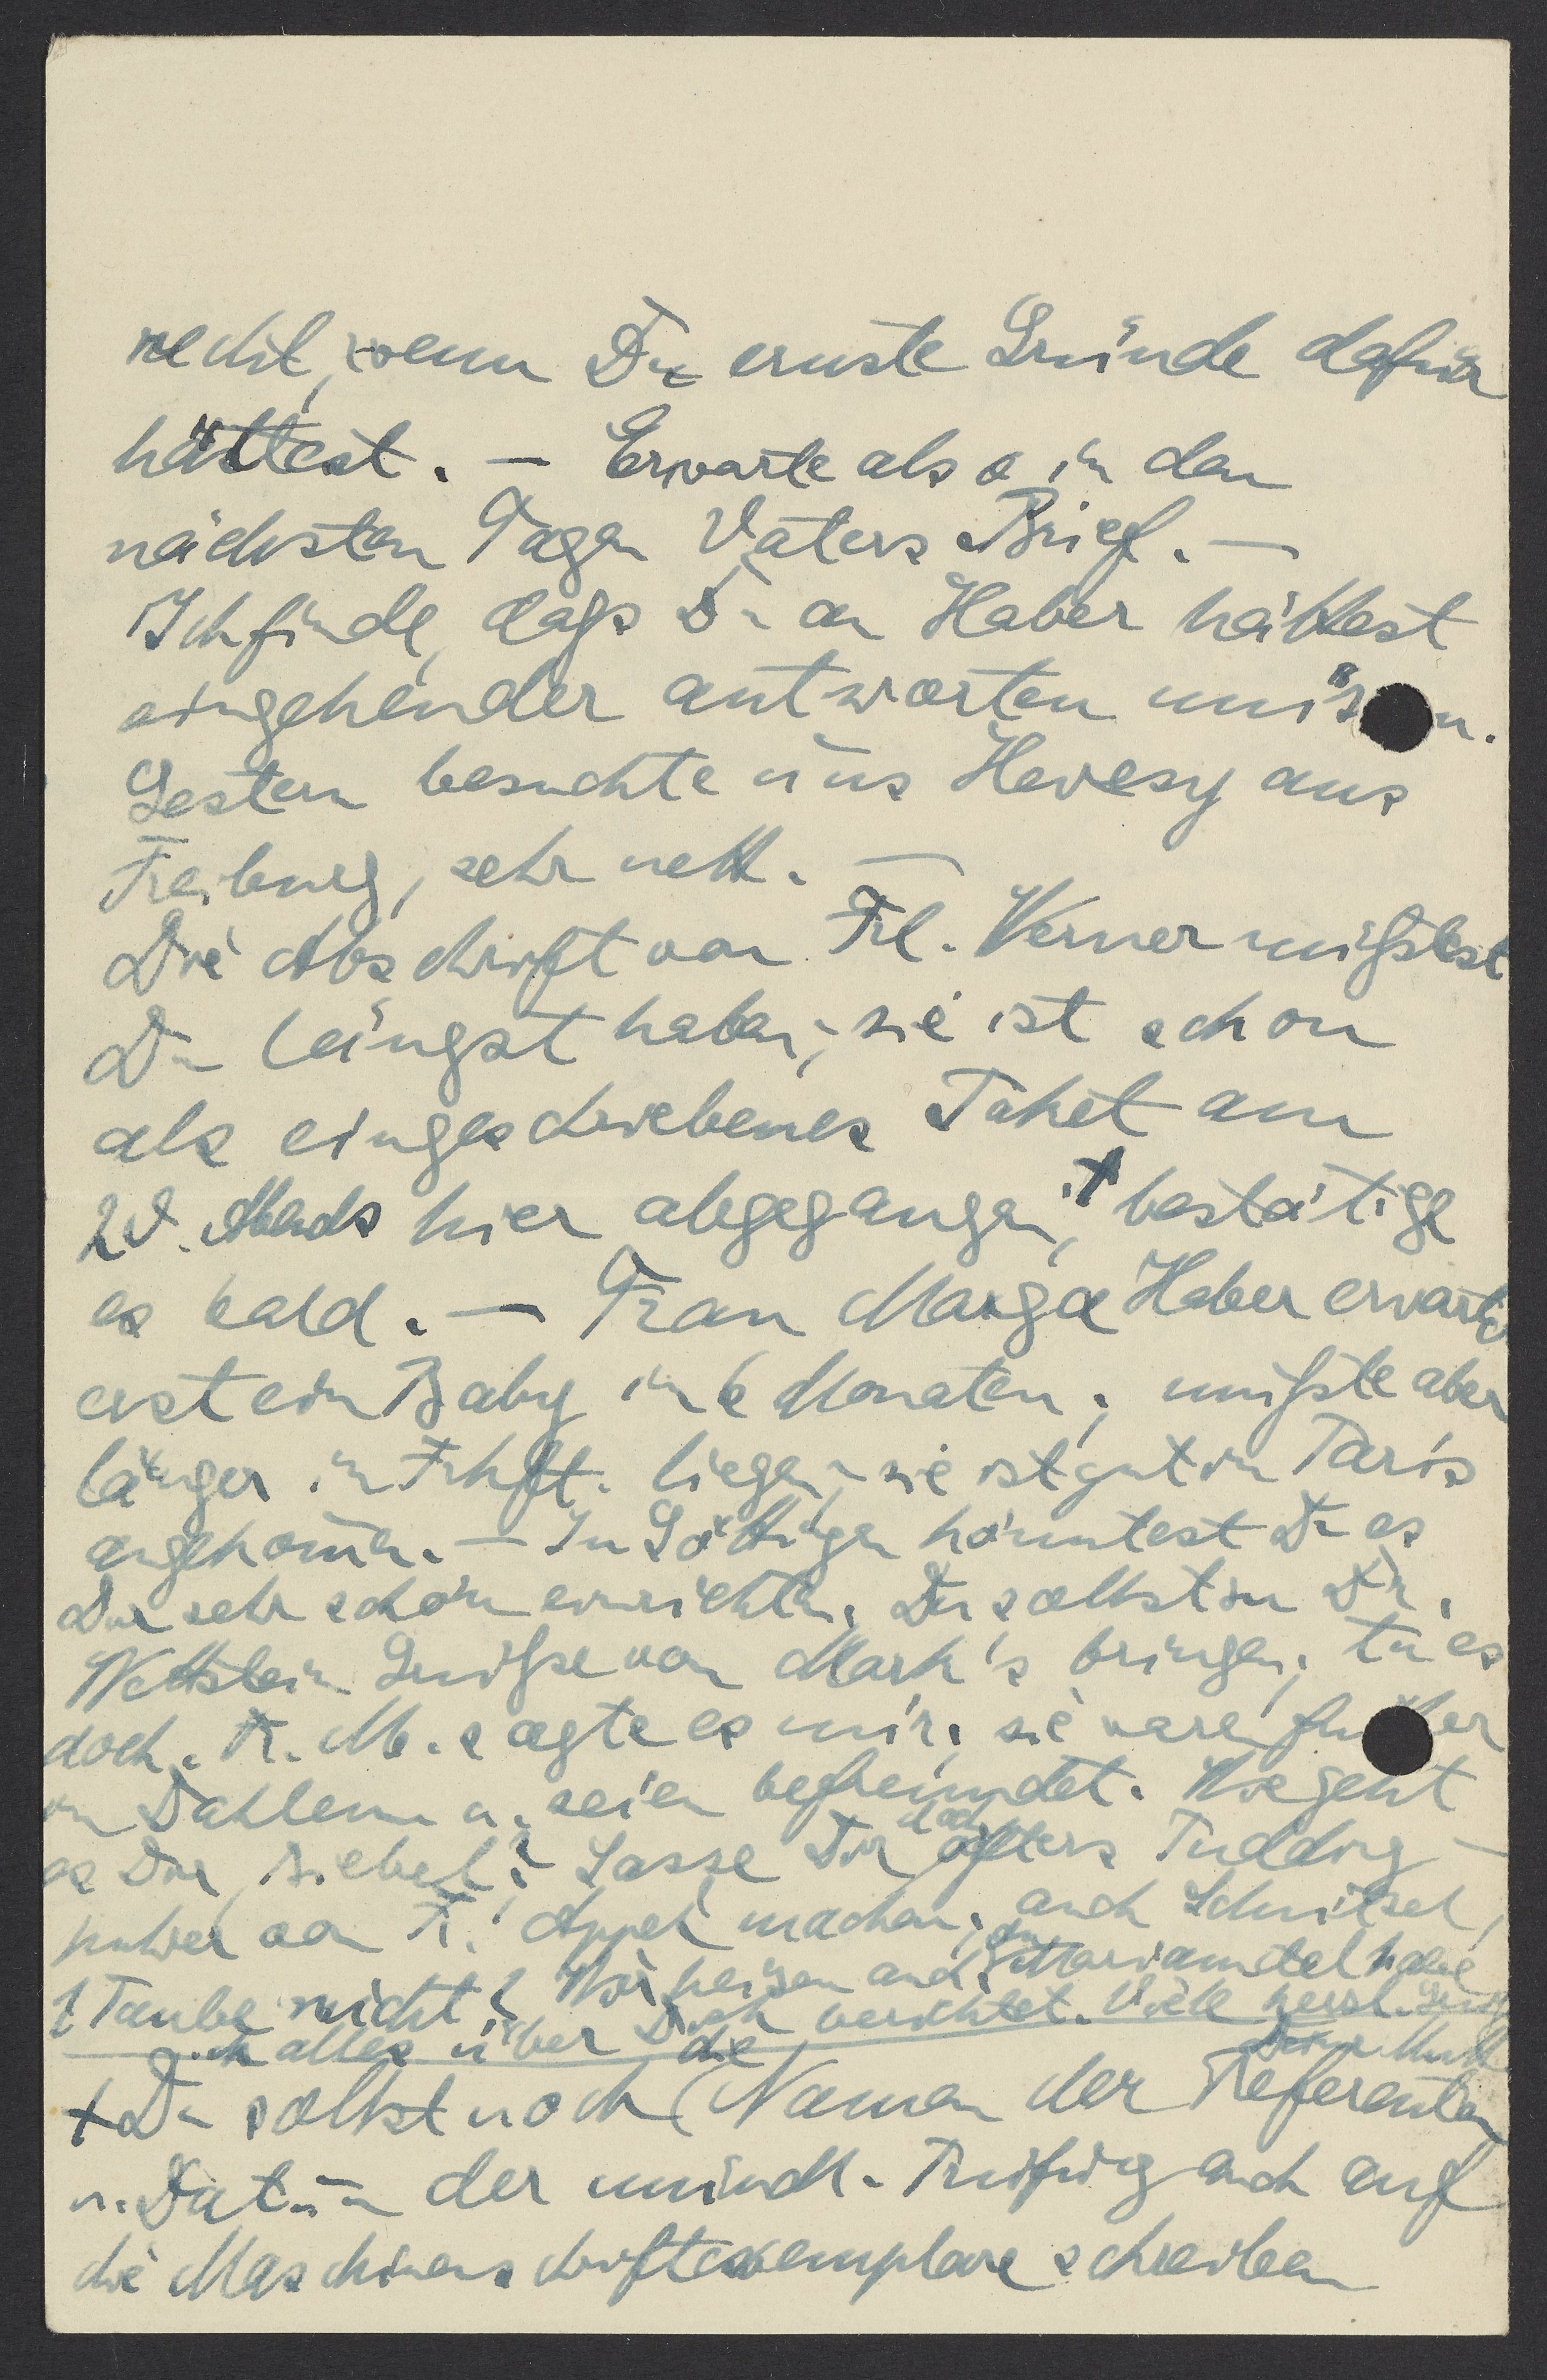 recht, wenn Du ernste Gründe dafür
hättest. – Erwarte also in den
nächsten Tagen Vaters Brief. –
Ich finde, daß Du an Haber hättest
eingehender antworten müs n.
Gestern besuchte uns Hevesy aus
Freiburg, sehr nett. –
Die Abschrift von Frl. Werner müßtest
Du längst haben; sie ist schon
als eingeschriebenes Paket am
Abends hier abgegangen, + bestätige
es bald. – Frau Marga Haber erwartet
erst ein Baby in 6 Monaten; mußte aber
länger in Frkft. liegen; sie ist gut in Paris
angekom̄en. – In Göttingen könntest Du es
Dir sehr schön einrichten. Du sollst in Dr.
Wettstein Grüße von Mark's bringen; tu es
doch. Fr. M. sagte es mir; sie waren früher
in Dahlem u. seien befreundet. Wie geht
es Dir, Liebel? Lasse Dir doch öfters Pudding-
pulver von Fr. Appel machen; auch Schnitzel,
1 Taube nicht? Wir heizen auch; an Mariamidel habe
ich alles über Dich berichtet. Viele herzl. Grüße
Deine Mutti
+ Du sollst noch die Namen der Referenten
u. Datum der mündl. Prüfung auch auf
die Maschinenschriftexemplare schreiben